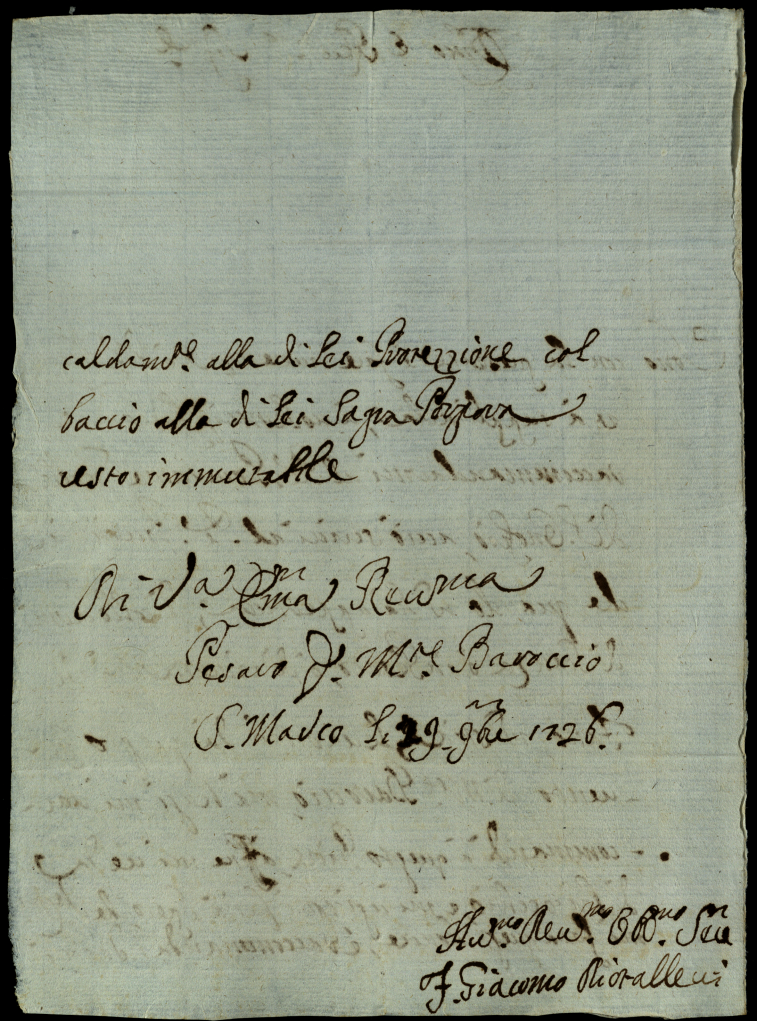 caldam.te alla di Lei Protezzione col
baccio alla di Lei Sagra Porpora
resto immutabile
Di V.a Em.ma Reu.ma
Pesaro P. M.te Baroccio
S. Marco Li 29 9bre 1726.
Hu.mo Deu.mo Ob.mo Ser.e
F. Giacomo